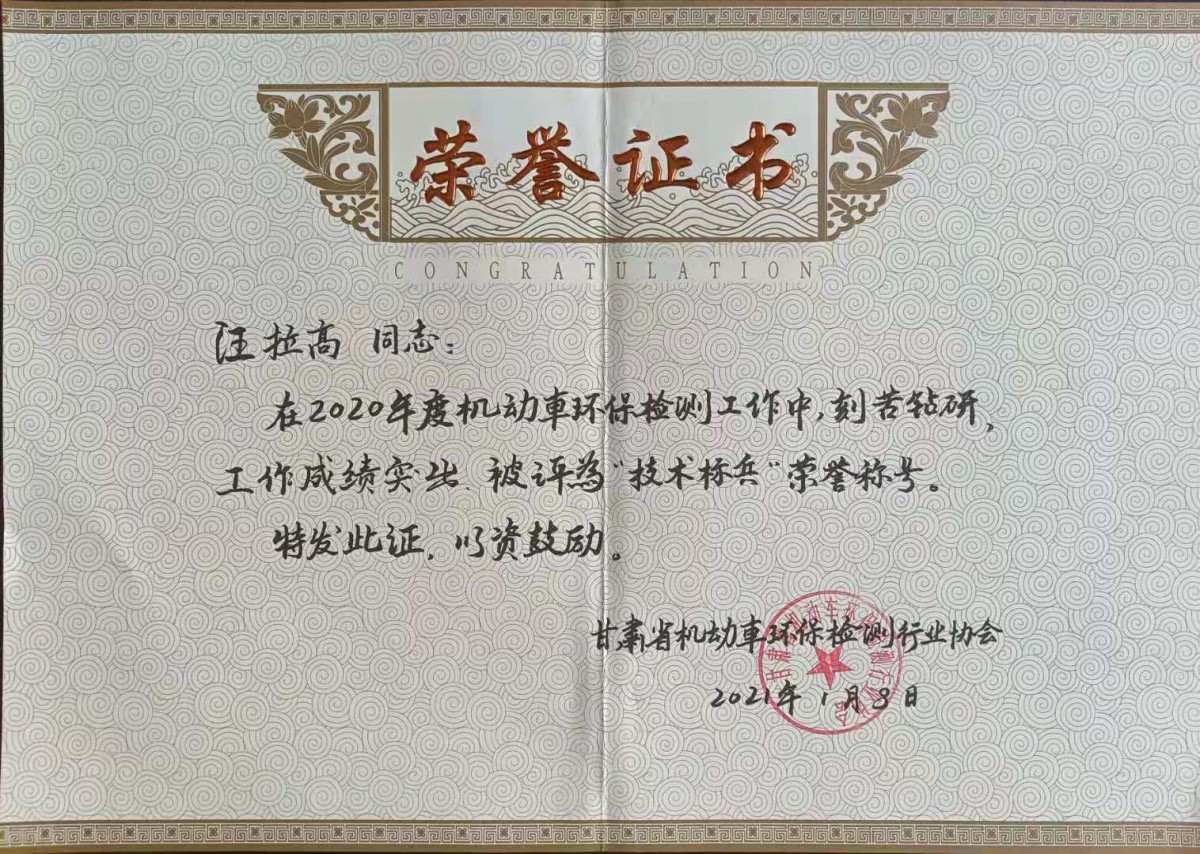 荣誉证书
CONGRATULATION
汪拉高 同志：
在2020年度机动車环保检测工作中,刻苦钻研,
工作成绩突出.被评为“技术标兵”荣誉称号。
特发此证.以资鼓励。
甘肃省机动車环保检测行业协会
2021年1月8日
甘肃省机动车环保检测行业协会